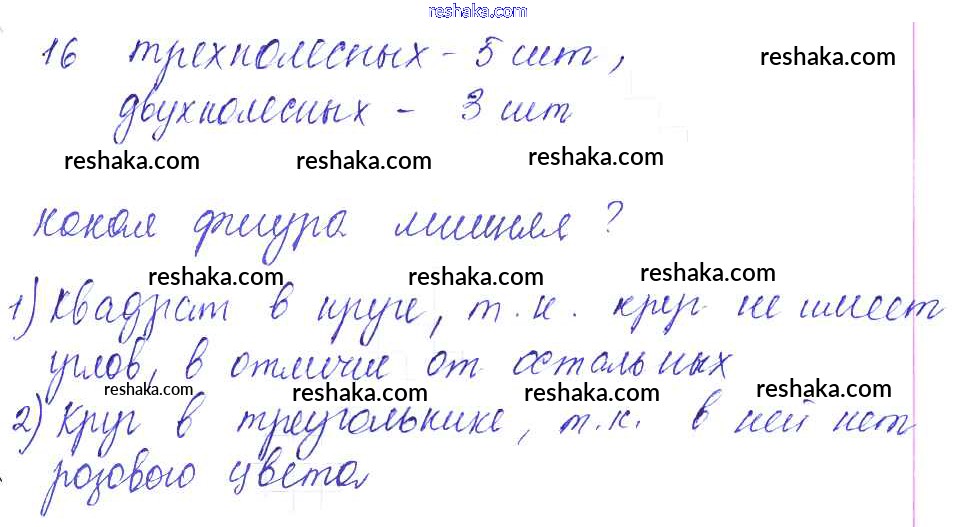 reshaka.com
16 трехколесных - 5 шт,
reshaka.com
двухколесных - 3 шт
reshaka.com reshaka.com reshaka.com
какая фигура лишняя?
reshaka.com reshaka.com reshaka.com
1) Квадрат в круге, т.к. круг не имеет
углов, в отличие от остальных
reshaka.com reshaka.com reshaka.com reshaka.com
2) Круг в треугольнике, т.к. в ней нет
розового цвета